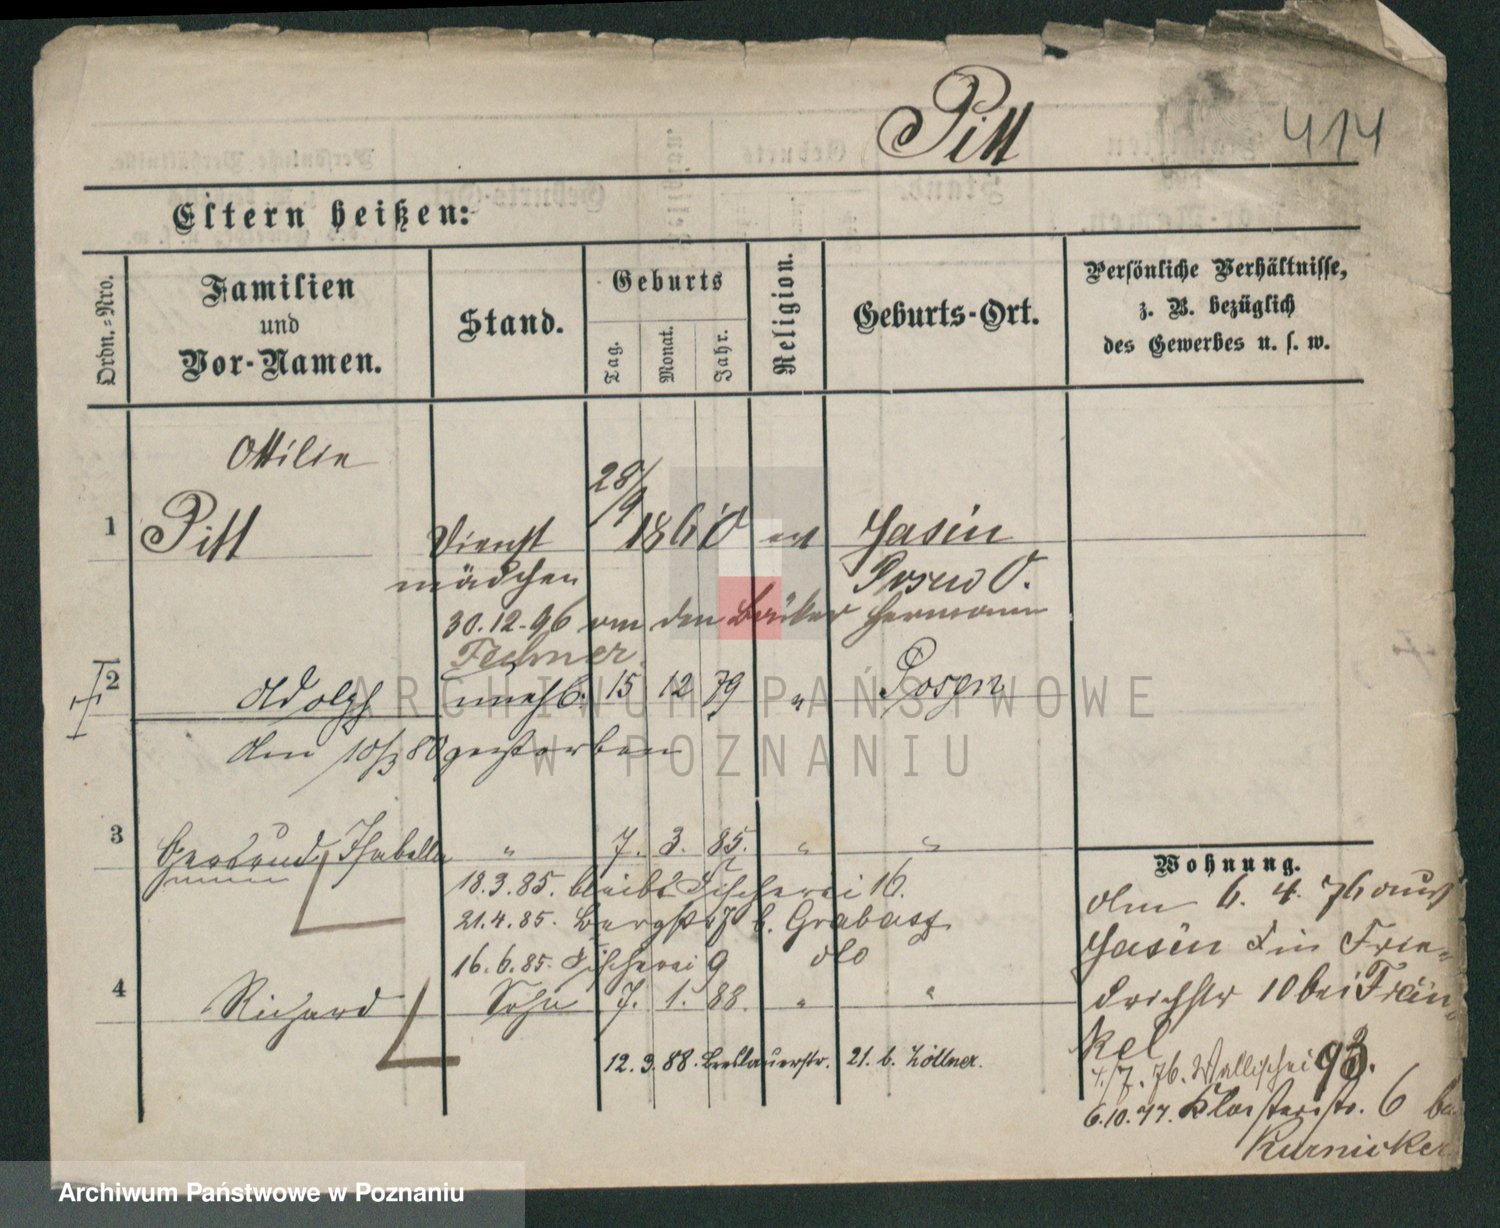 Pitt
414
Eltern heißen:
Ordn.=Nro.
Familien
und
Vor-Namen.
Stand.
Geburts
Tag.
Monat.
Jahr.
Religion.
Geburts-Ort.
Persönliche Verhältnisse,
z. B. bezüglich
des Gewerbes u. s. w.
Ottilie
1 Pitt Dienst 28/9 1860 ev Jasin
mädchen Posen O.
30.12.96 den Bäcker Hermann
Fechner.
2 Adolph unehl. 15 12 79 " Posen
den 10/3 80 gestorben
3 Gertrud Isabella " 7. 3. 85. " "
18.3.85. bleibt Fischerei 16.
21.4.85. Bergstr 7 b. Grabasz
16.6.85. Fischerei 9 dto
4 Richard Sohn 7. 1. 88. " "
12.3.88. Breslauerstr. 21. b. Zöllner.
Wohnung.
Am 6. 4. 76 aus
Jasin
Frie-
drichstr 10 bei Frän-
kel
4/7. 76. Wallischei 93.
6.10.77. Klosterstr. 6 bei
Kurnicker
ARCHIWUM PAŃSTWOWE
W POZNANIU
Archiwum Państwowe w Poznaniu